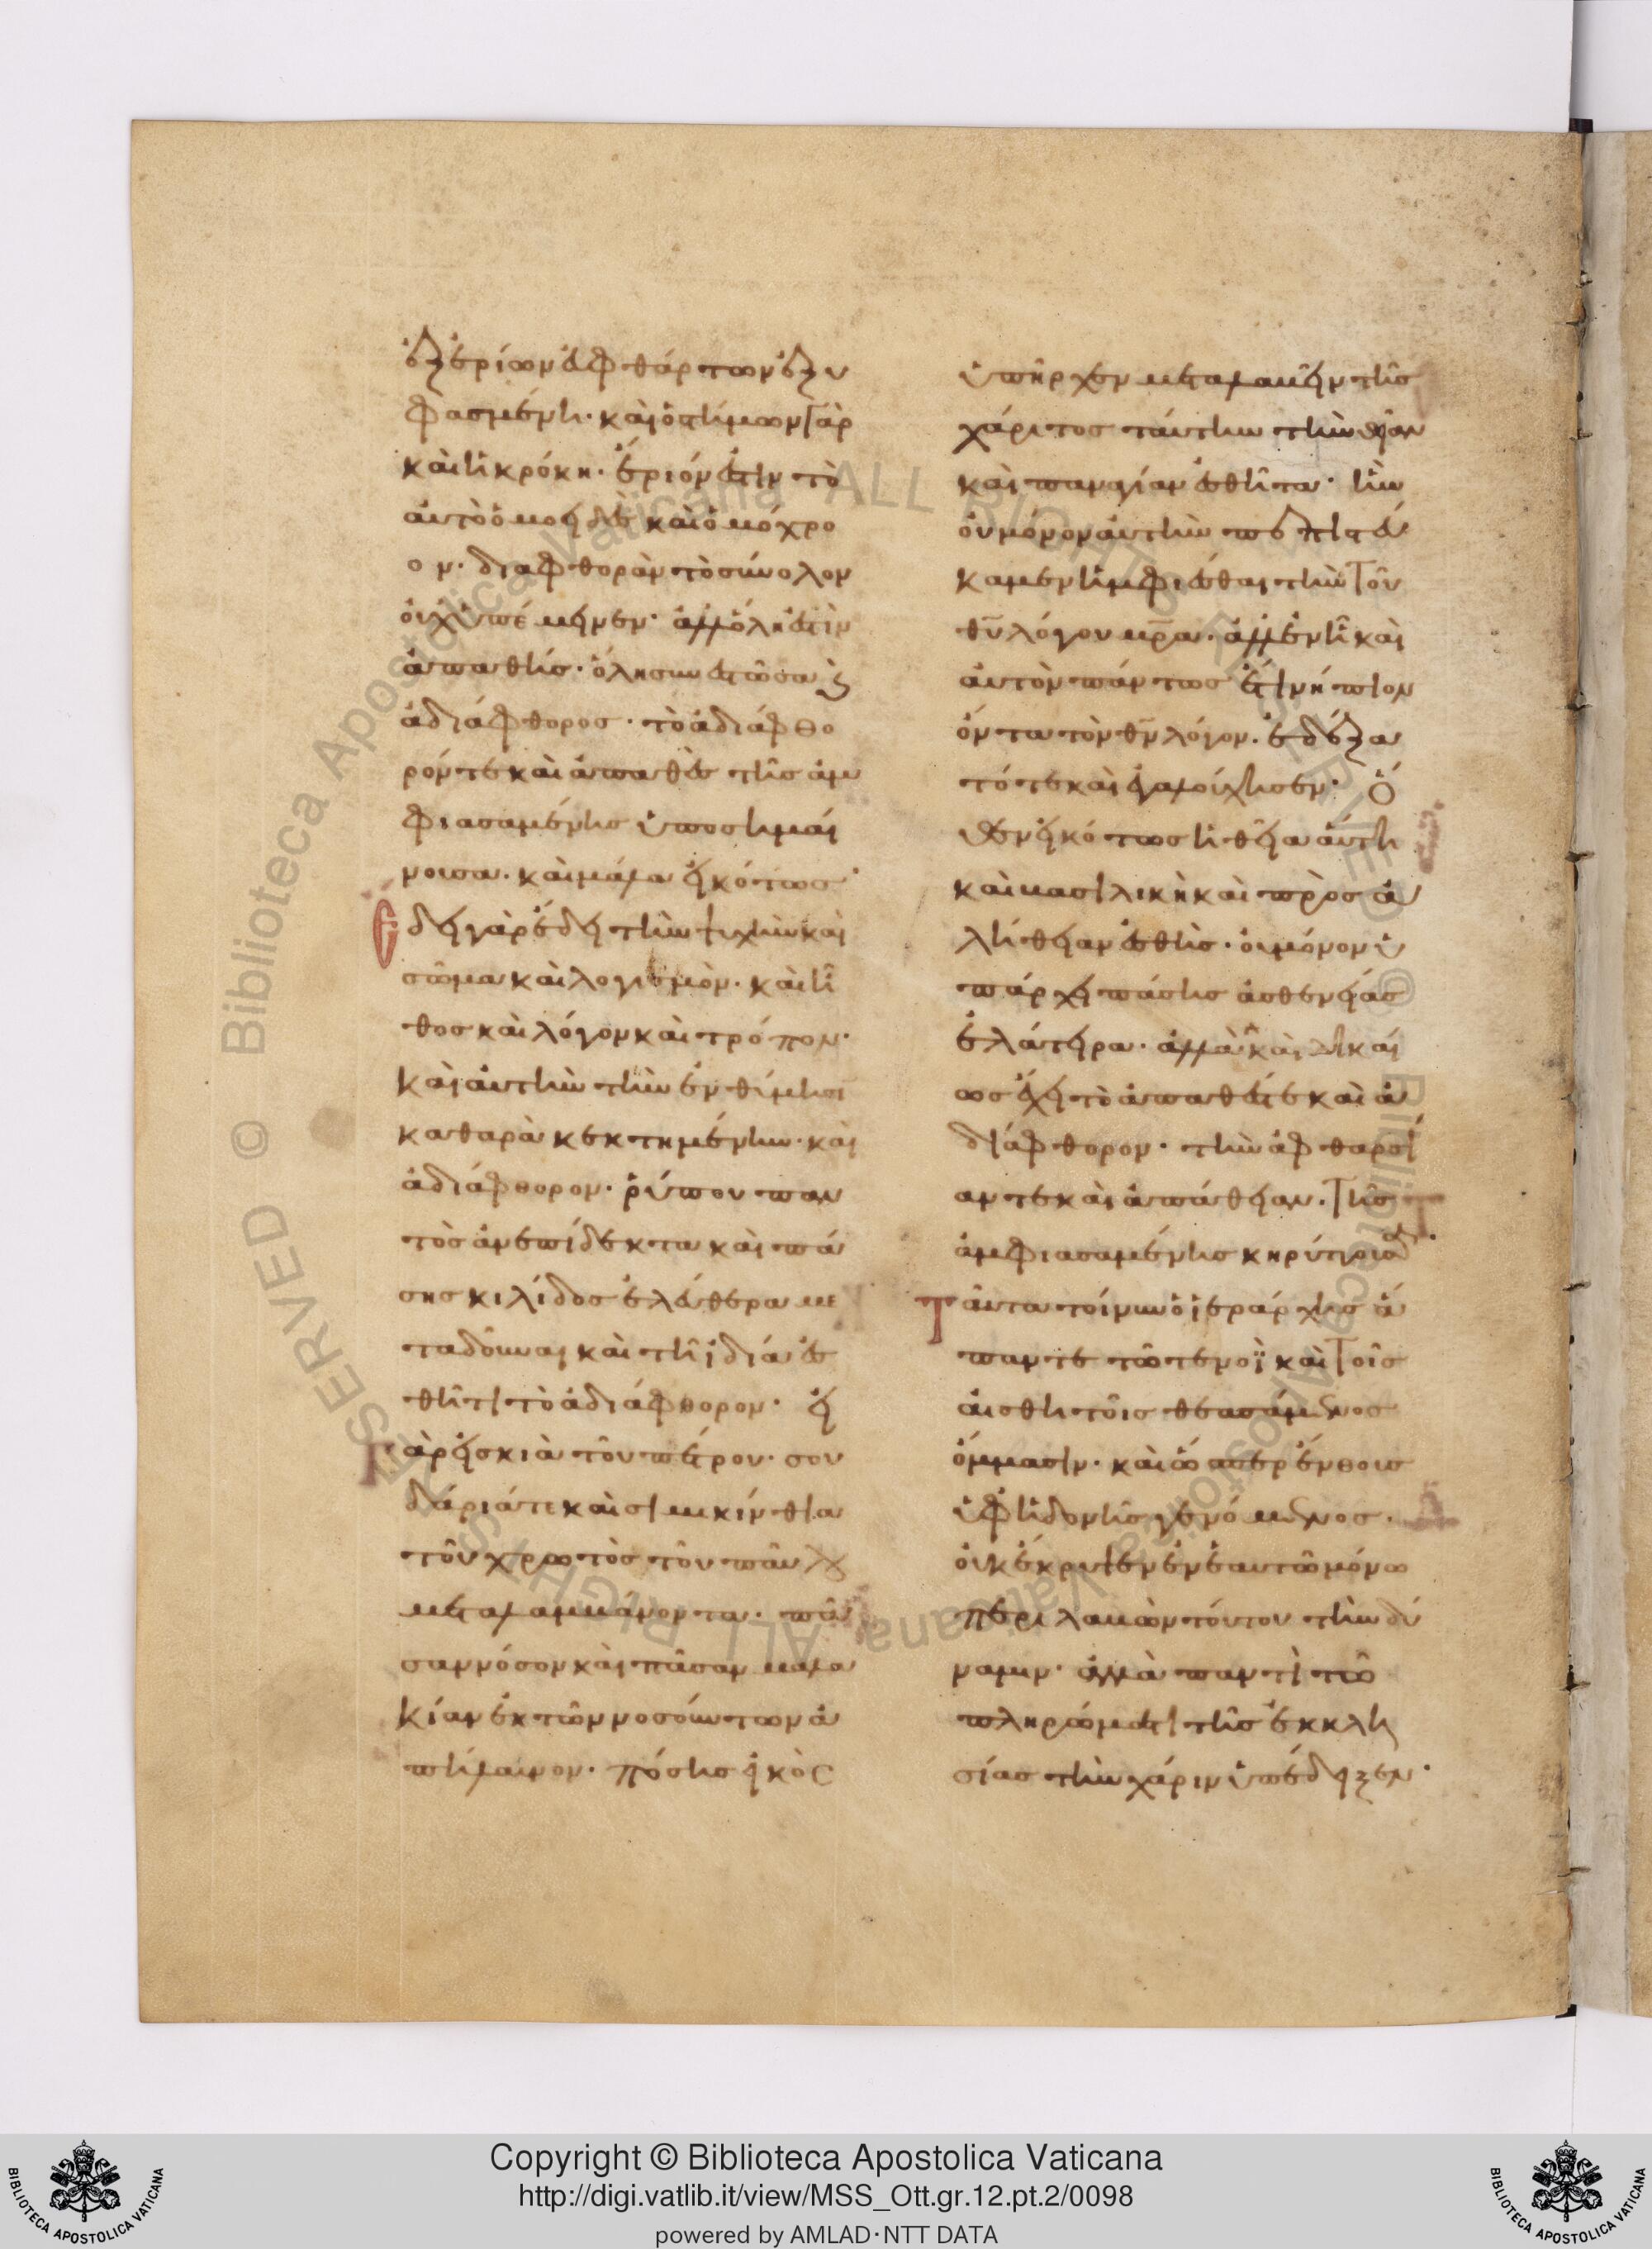 ἐξ ἐρίων ἀφθάρτων ἐξυ
φασμένη· καὶ ὁ στήμων γὰρ
καὶ ἡ κρόκη· ἔριόν ἐστιν τὸ
αὐτὸ ὁμοειδὲς καὶ ὁμόχρο
ον· διαφθορὰν τὸ σύνολον
οὐχ ὑπέμεινεν· ἀλλ' ὅλη ἐστὶν
ἀπαθής· ὅλη συνεστῶσα
ἀδιάφθορος· τὸ ἀδιάφθο
ρόν τε καὶ ἀπαθὲς τῆς ἀμ
φιασαμένης ὑποσημαί
νουσα. καὶ μάλα εἰκότως·
ἔδει γὰρ ἔδει τὴν ψυχὴν καὶ
σῶμα καὶ λογισμὸν· καὶ ἦ
θος καὶ λόγον καὶ τρόπον·
καὶ αὐτὴν τὴν ἐνθύμησι
καθαρὰ κεκτημένην· καὶ
ἀδιάφθορον· ῥύπου παν
τὸς ἀνεπίδεκτα καὶ πά
σης κιλίδος ἐλεύθερα με
ταδοῦναι καὶ τῇ ἰδίᾳ ἐσ
θῆτι τὸ ἀδιάφθορον· εἰ
γὰρ ἡ σκιὰ τοῦ πέτρου· σου
δάριά τε καὶ σιμικίνθια
τοῦ χρωτὸς τοῦ παύλου
μεταλαμβάνοντα· πᾶ
σαν νόσον καὶ πᾶσαν μαλα
κίαν ἐκ τῶν νοσούντων ἀ
πήλαυνον· πόσης εἰκὸς
ὑπῆρχεν μεταλαβεῖν τῆς
χάριτος ταύτην τὴν θείαν
καὶ παναγίαν ἐσθῆτα· ἣν
οὐ μόνον αὐτὴν πεπιστεύ
καμεν ἠμφιέσθαι τὴν τοῦ
θυ λόγου μρα. ἀλλ' ἐν ᾗ καὶ
αὐτὸν πάντως ἔτι νήπιον
ὄντα τὸν θν λόγον. ἐδέξα
τό τε καὶ ἐγαλούχησεν· Ὅ
θεν εἰκότως ἡ θεία αὕτη
καὶ βασιλικὴ καὶ πρὸς ἀ
λήθειαν ἐσθὴς· οὐ μόνον ὑ
πάρχει πάσης ἀσθενείας
ἐλάτειρα· ἀλλὰ καὶ δικαί
ως ἔχει τὸ ἀπαθές τε καὶ ἀ
διάφθορον· τὴν ἀφθαρσί
αν τε καὶ ἀπάθειαν. τῆς
ἀμφιασαμένης κηρύττουσα·
Ταῦτα τοίνυν ὁ ἱεράρχης ἅ
παντα τῷ τε νοῒ καὶ τοῖς
αἰσθητοῖς θεασάμενος
ὄμμασιν· καὶ ὥσπερ ἔνθους
ὑφ' ἡδονῆς γενόμενος·
οὐκ ἔκρυψεν ἐν ἑαυτῷ μόνω
περιλαβὼν τούτου τὴν δύ
ναμιν· ἀλλὰ παντὶ τῶ
πληρώματι τῆς ἐκκλη
σίας τὴν χάριν ὑπέδειξεν·
Copyright © Biblioteca Apostolica Vaticana
http://digi.vatlib.it/view/MSS_Ott.gr.12.pt.2/0098
powered by AMLAD·NTT DATA
BIBLIOTECA APOSTOLICA VATICANA
BIBLIOTECA APOSTOLICA VATICANA